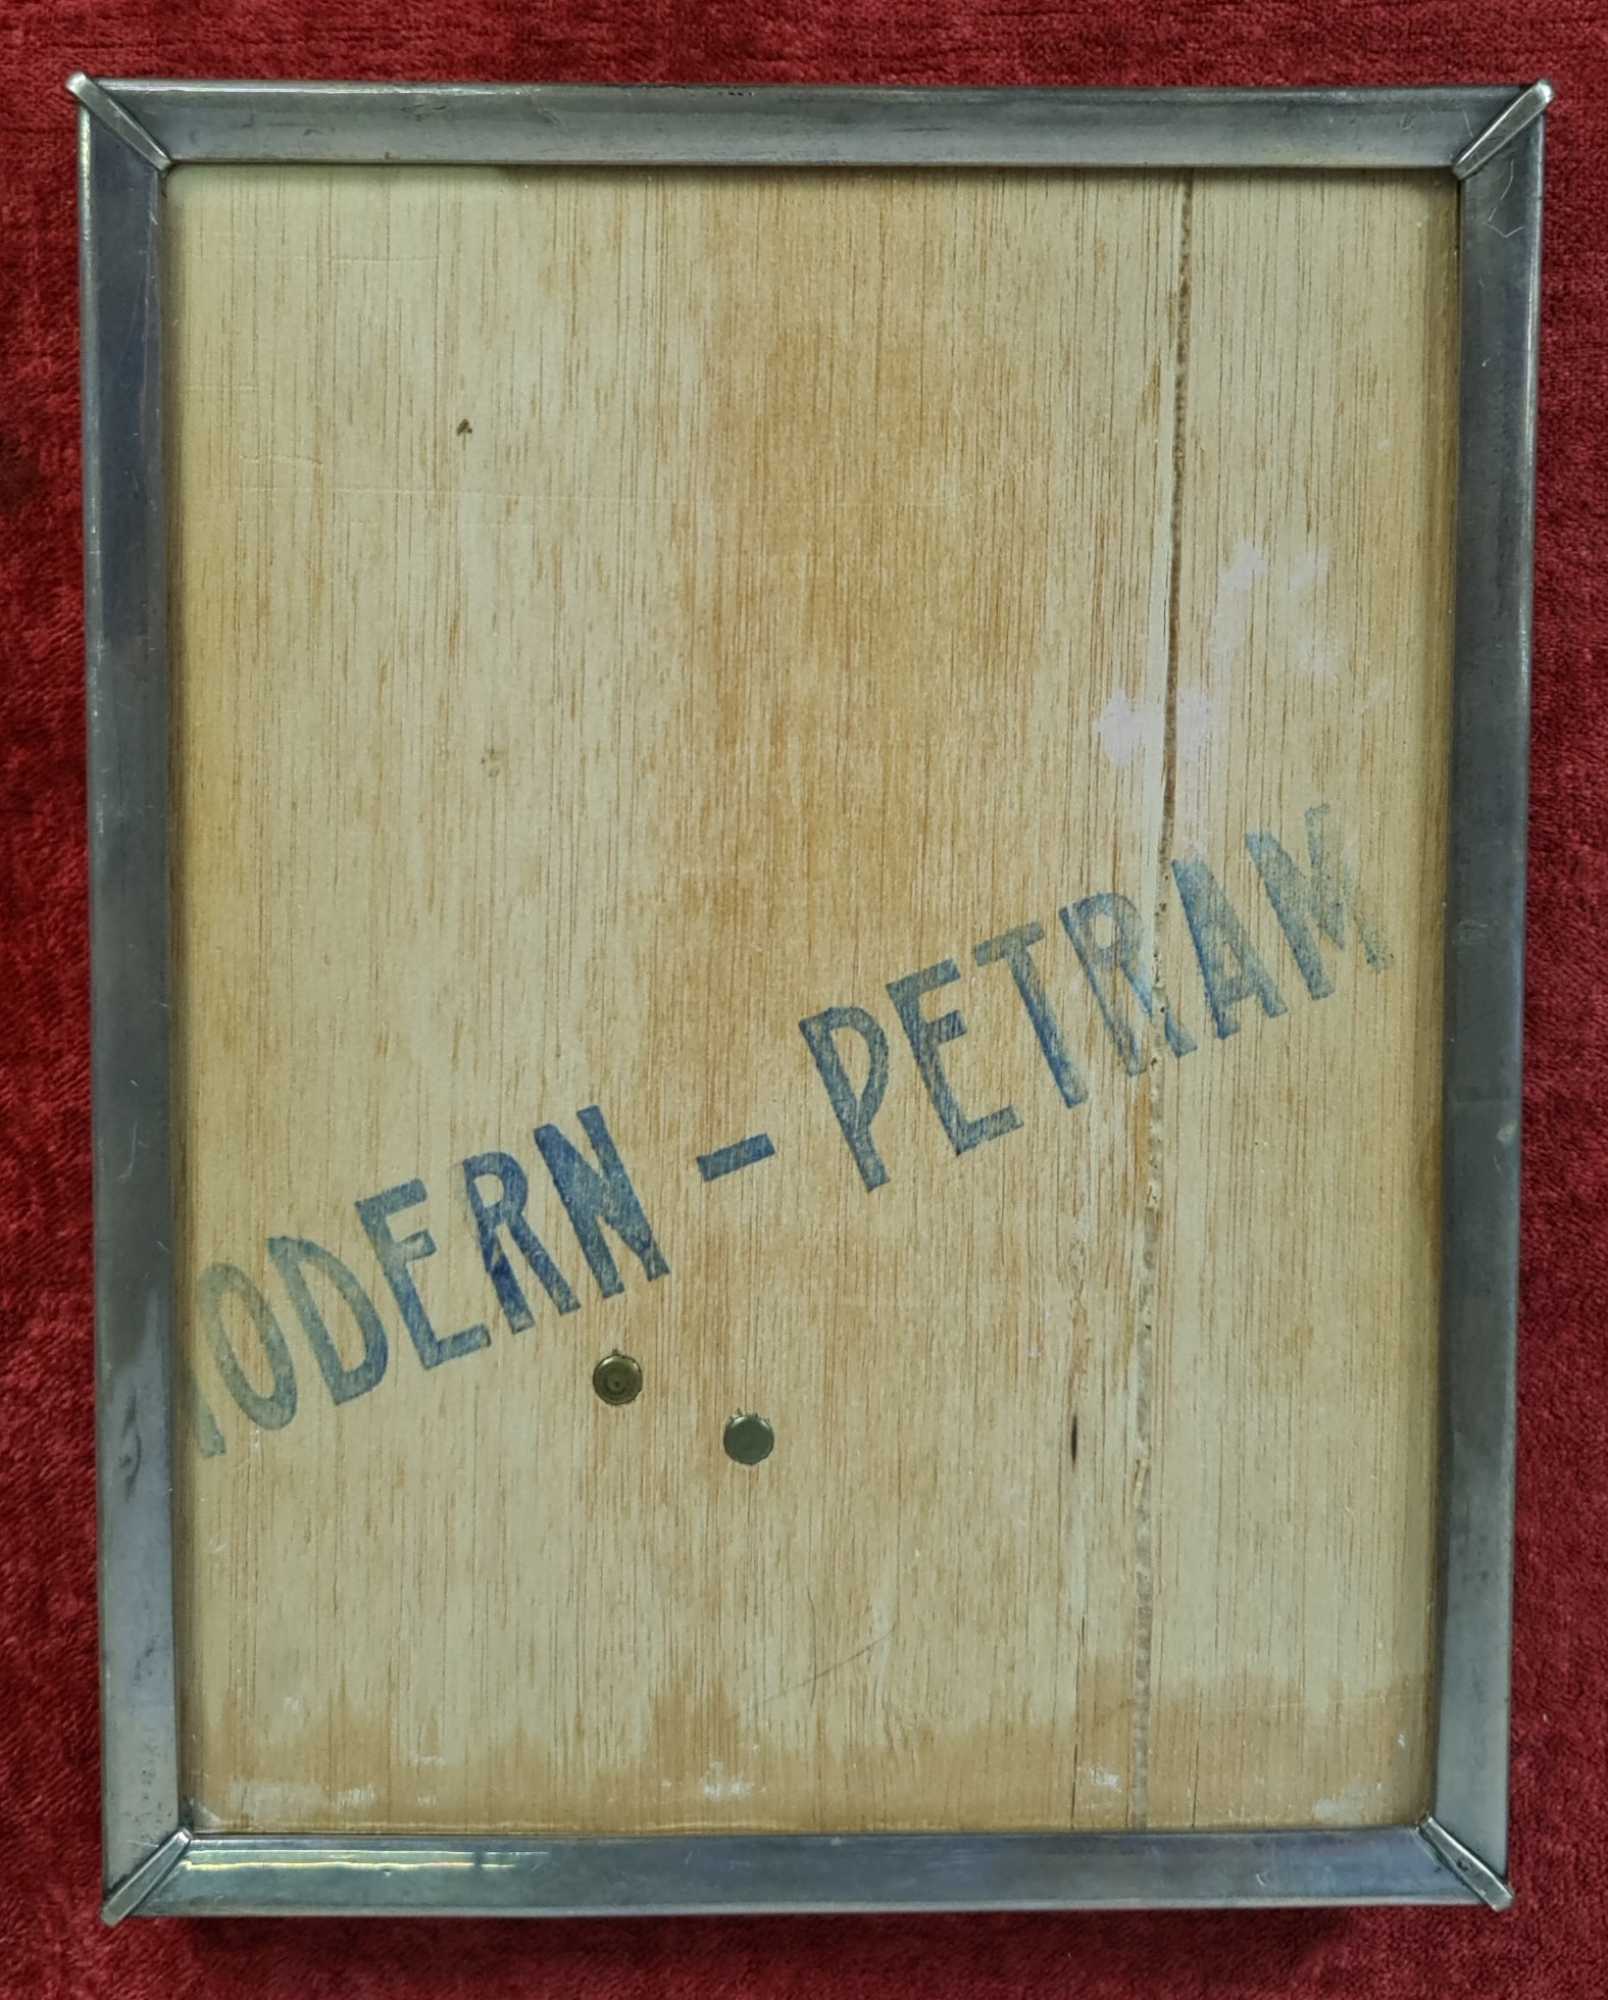 MODERN - PETRAM